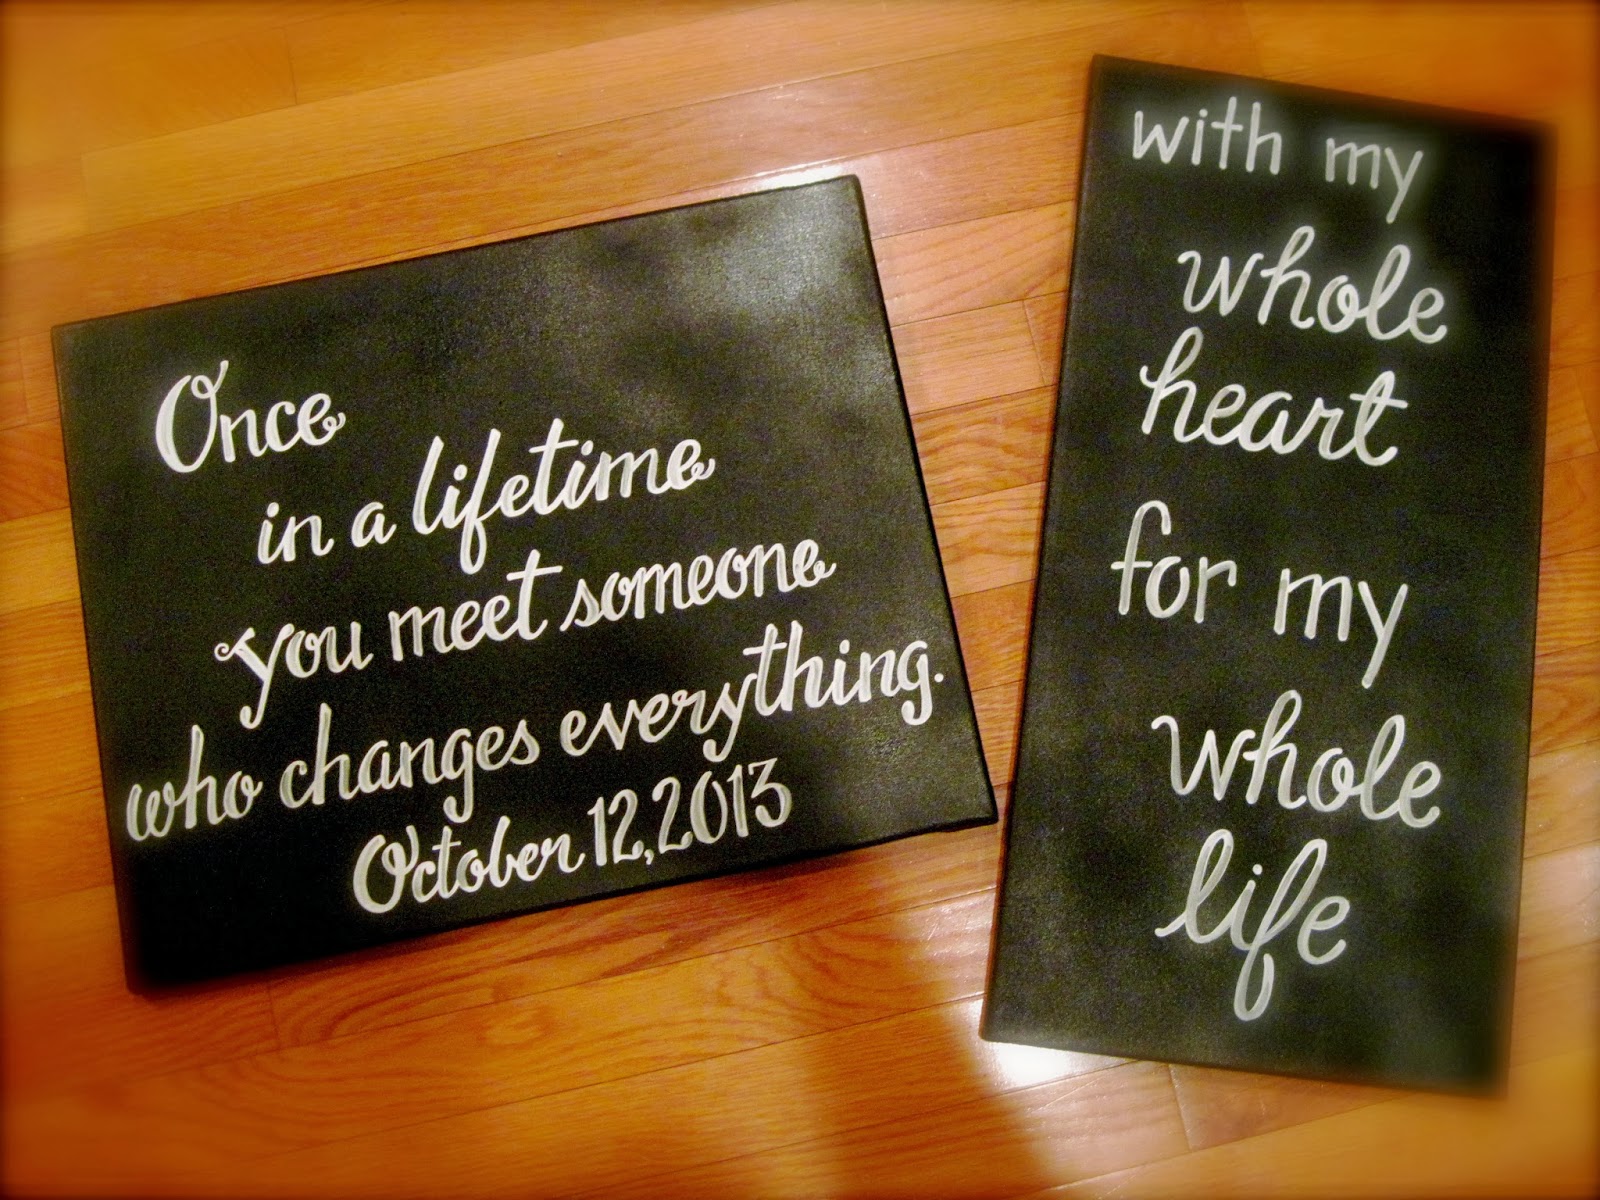 Once
in a lifetime
you meet someone
who changes everything.
October 12, 2013
with my
whole
heart
for my
whole
life